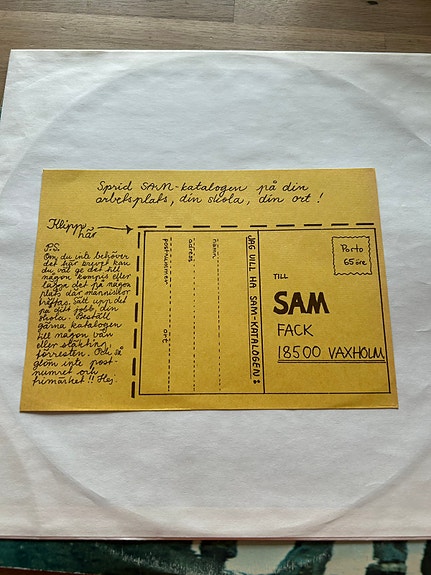 Sprid SAM-katalogen på din
arbetsplats, din skola, din ort!
Klipp
här
P.S.
Om du inte behöver
det här brevet kan
du väl ge det till
någon kompis eller
lägga det på någon
plats där människor
träffas. Sätt upp det
på ditt jobb, din
skola. Beställ
gärna katalogen
till någon vän
eller släkting
förresten. Och så
glöm inte post-
numret och
frimärket!! Hej.
JAG VILL HA SAM-KATALOGEN:
namn
adress
postnummer ort
Porto
65 öre
TILL
SAM
FACK
18500 VAXHOLM